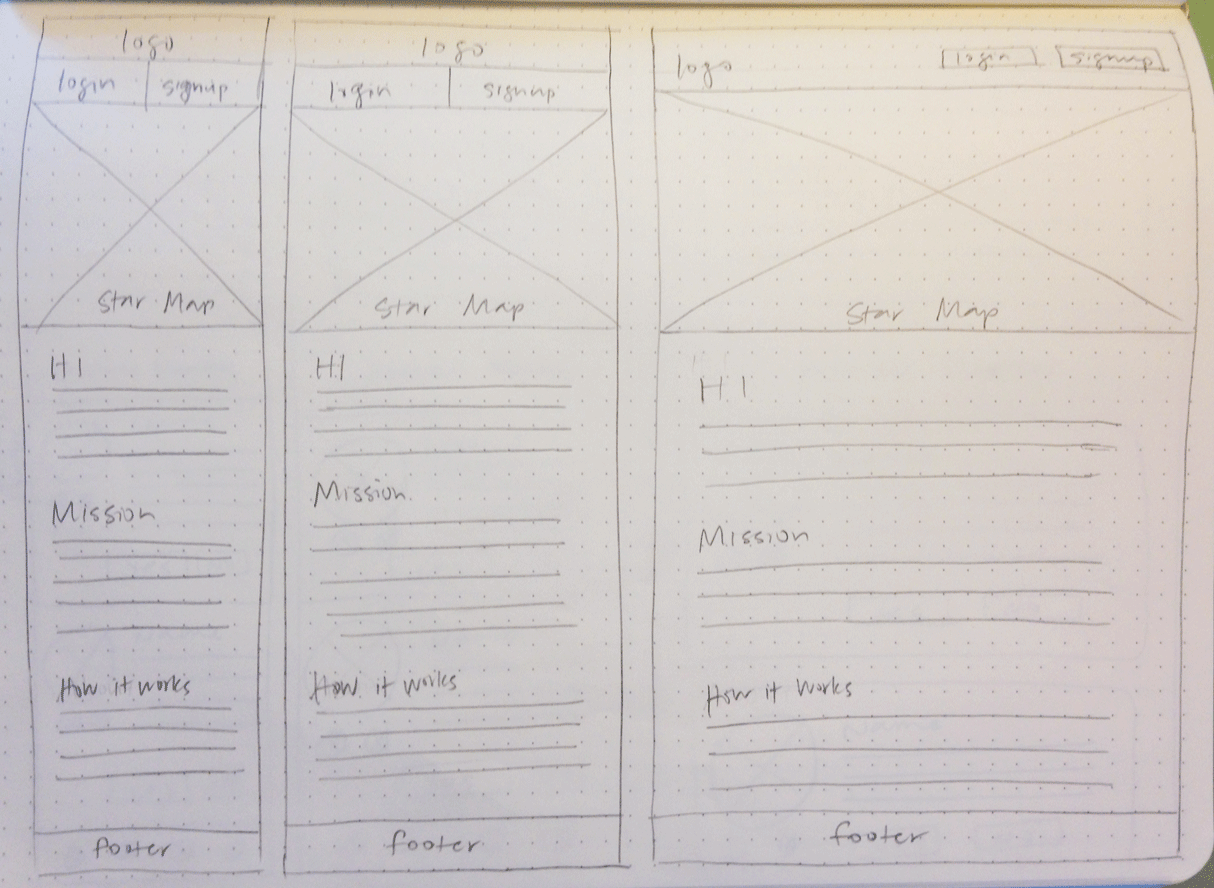 logo
login signup
Star Map
Hi
Mission
How it works
footer
logo
login signup
Star Map
HI
Mission
How it works
footer
logo login signup
Star Map
HI
Mission
How it works
footer